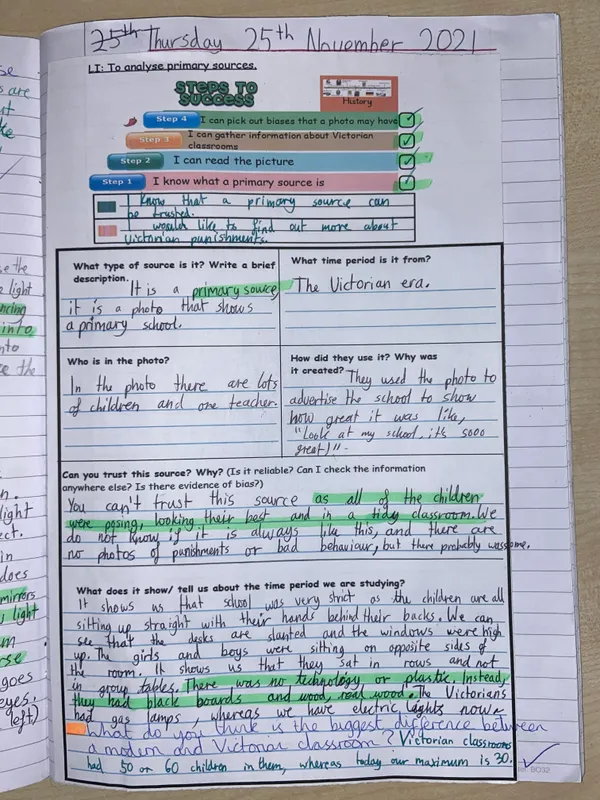 25th Thursday 25th November 2021
LI: To analyse primary sources.
STEPS TO
SUCCESS
History
Step 4 I can pick out biases that a photo may have
Step 3 I can gather information about Victorian
classrooms
Step 2 I can read the picture
Step 1 I know what a primary source is
I know that a primary source can
be trusted.
I would like to find out more about
Victorian punishments.
What type of source is it? Write a brief
description.
It is a primary source
it is a photo that shows
a primary school.
What time period is it from?
The Victorian era.
Who is in the photo?
In the photo there are lots
of children and one teacher.
How did they use it? Why was
it created?
They used the photo to
advertise the school to show
how great it was like,
"Look at my school, it's sooo
great!".
Can you trust this source? Why? (Is it reliable? Can I check the information
anywhere else? Is there evidence of bias?)
You can't trust this source as all of the children
were posing, looking their best and in a tidy classroom. We
do not know if it is always like this, and there are
no photos of punishments or bad behaviour, but there probably was some.
What does it show/ tell us about the time period we are studying?
It shows us that school was very strict as the children are all
sitting up straight with their hands behind their backs. We can
see that the desks are slanted and the windows were high
up. The girls and boys were sitting on opposite sides of
the room. It shows us that they sat in rows and not
in group tables. There was no technology or plastic. Instead,
they had black boards and wood, real wood. The Victorians
had gas lamps, whereas we have electric lights now.
What do you think is the biggest difference between
a modern and Victorian classroom? Victorian classrooms
had 50 or 60 children in them, whereas today our maximum is 30.
light
ncing
into
nto
the
light
ect.
in
does
mirrors
light
m
rse
goes
eyes.
left)